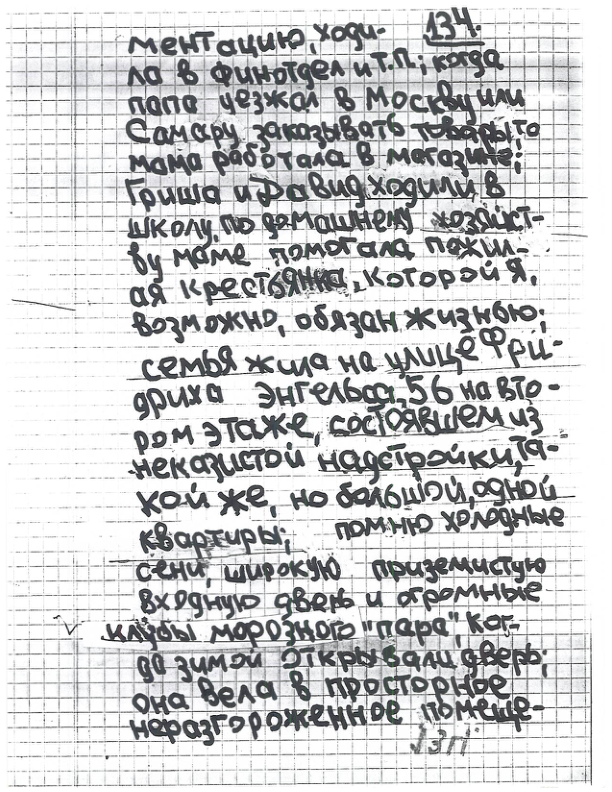 134.
ментацию, ходи-
ла в финотдел и т.п.; когда
папа уезжал в Москву или
Самару заказывать товары, то
мама работала в магазине;
Гриша и Давид ходили в
школу, по домашнему хозяйст-
ву маме помогала пожил-
ая крестьянка, которой я,
возможно, обязан жизнью;
семья жила на улице Фри-
дриха Энгельса, 56 на вто-
ром этаже, состоявшем из
неказистой надстройки, та-
кой же, но большой, одной
квартиры; помню холодные
сени, широкую приземистую
входную дверь и огромные
клубы морозного "пара", ког-
да зимой открывали дверь;
она вела в просторное
неразгороженное помеще-